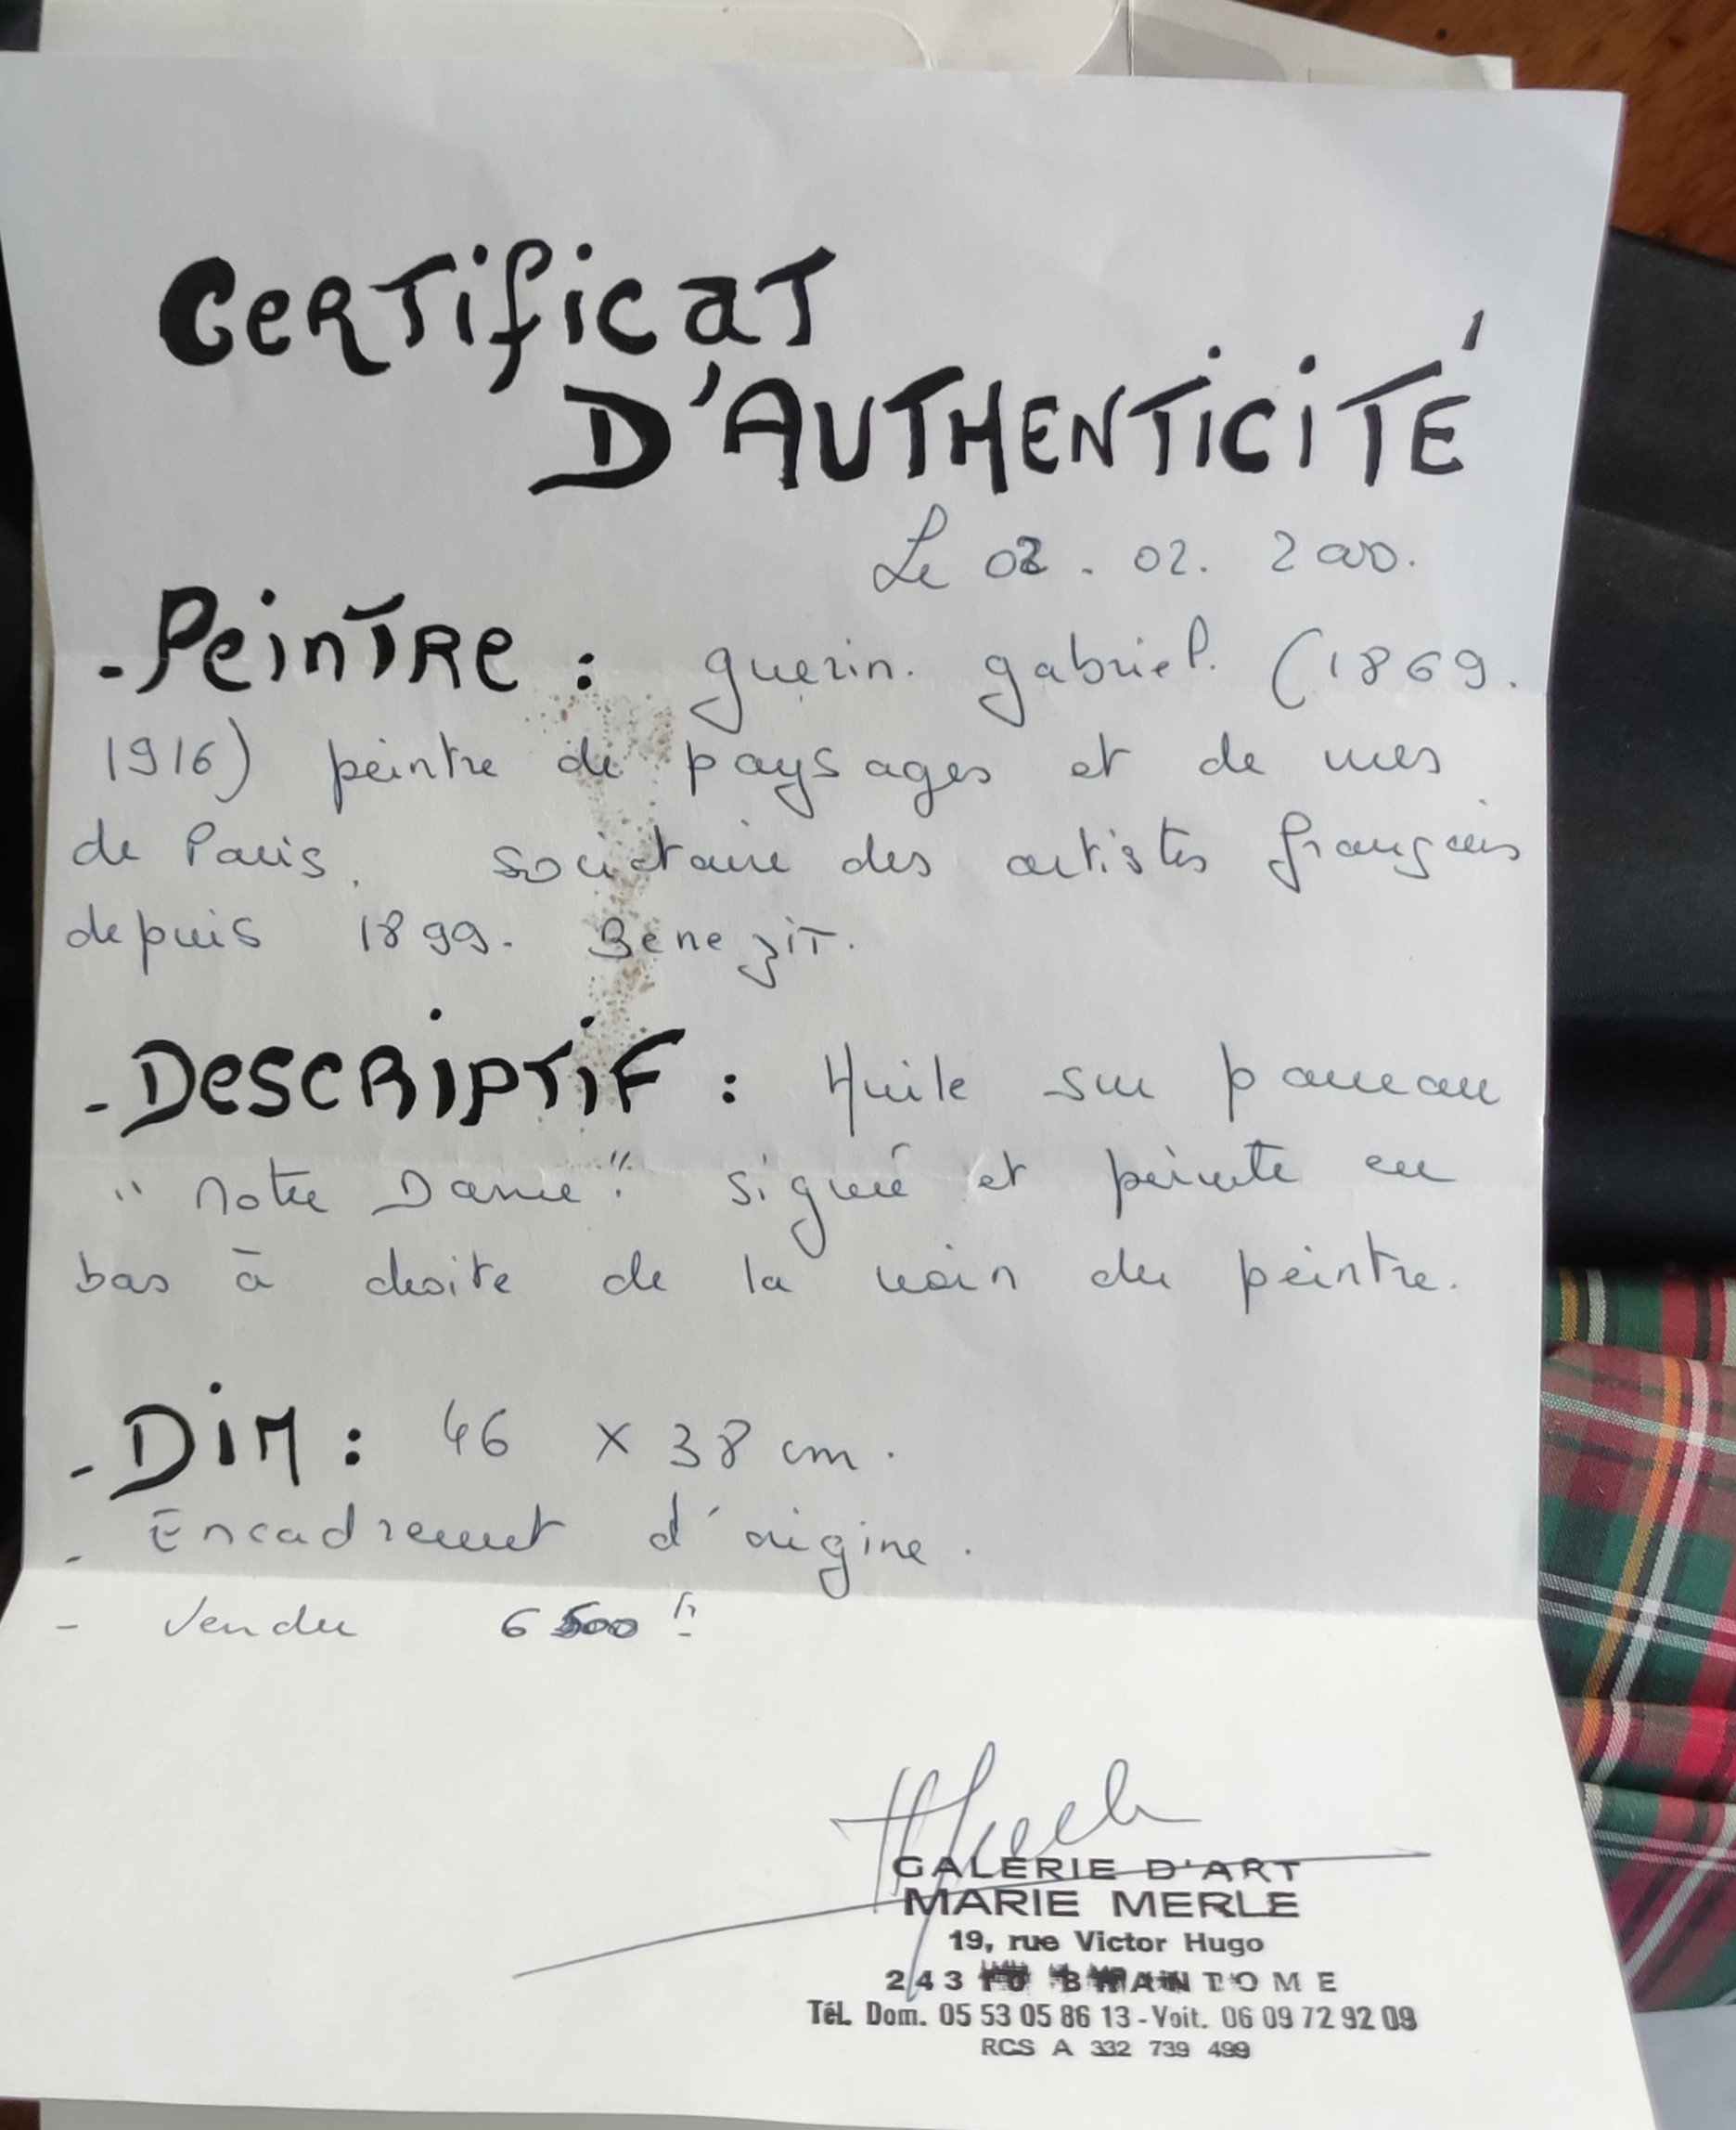 Certificat
D'AUTHENTICITÉ
Le 02. 02. 2000.
- Peintre : guerin. gabriel. (1869.
1916) peintre de paysages et de vues
de Paris. sociétaire des artistes français
depuis 1899. Bénézit.
- Descriptif : Huile sur panneau
" Notre Dame". signé et peinte en
bas à droite de la main du peintre.
- Dim : 46 x 38 cm.
- Encadrement d'origine.
- Vendu 6500 F
GALERIE D'ART
MARIE MERLE
19, rue Victor Hugo
24310 BRANTOME
Tél. Dom. 05 53 05 86 13 - Voit. 06 09 72 92 09
RCS A 332 739 499